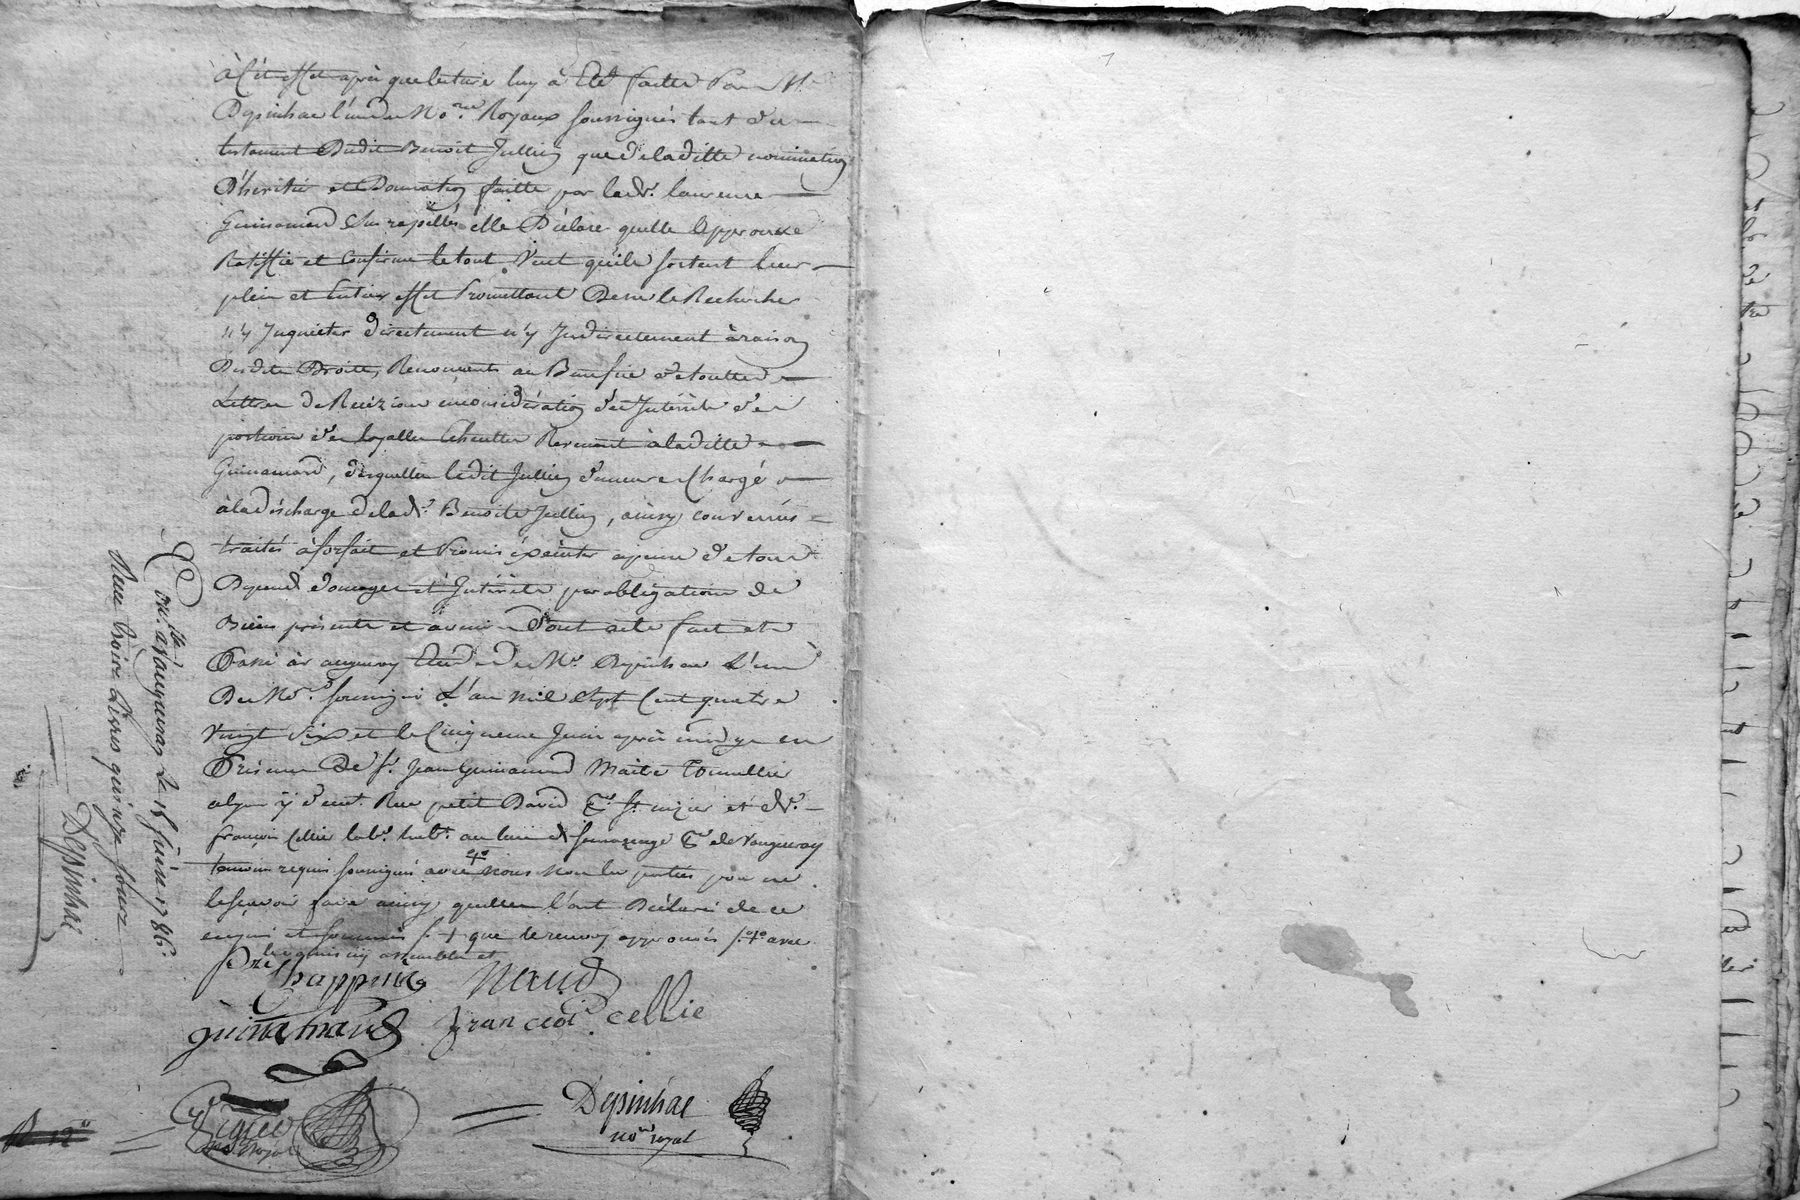 à Cét effet après que lecture luy à Eté faitte Par M.e
Depinhac l'un des No.res Royaux soussignés tant du
testament Dudit Benoit Jullien que de laditte nomination
D'heritier et Donnation faitte par lad.e laurence
Guinamand sus rapellés elle Déclare quelle Approuve
Ratiffie et Confirme le tout Veut qu'ils sortent leur
plein et Entier effet Promettant De ne le Rechercher
n'y Inquieter directement n'y Indirectement à raison
Desdits Droits, Renonceants au Benefice de touttes
Lettres de Recizion en considération des Intérêts des
portions des loyalles Echeuttes Revenant à laditte
Guinamand, desquelles ledit Jullien demeure Chargé
à la décharge de lad.e Benoite Jullien, ainsy convenus
traités à forfait et Promis éxécuter a peine de tous
Depends domages et Intérêts par obligation de
Biens présents et avenir Dont acte fait et
Passé à vaugneray Etude de M.e Depinhac L'un
Des No.res soussigné L'an mil Sept Cent quatre
Vingt Six et le Cinquieme Juin après midy en
Présence De s.r Jean Guinamand Maitre Tonnellier
a lyon y dem.t Rue petit David P.sse S.t nizier et de
françois Cellie lab.r hab.t au lieu de P.sse de Vaugneray
temoins requis soussignés avec nous Non les parties pour ne
le sçavoir faire ainsy quelles l'ont Déclaré de ce
enquis et sommés que le renvoy approuvés avec
Chappuis Naud
guinamand François cellie
Depinhac
no.re royal
no.re Royal
Con.llé a Vaugneray Le 15 Juin 1786.
Reçu treize Livres quinze sous
Depinhac